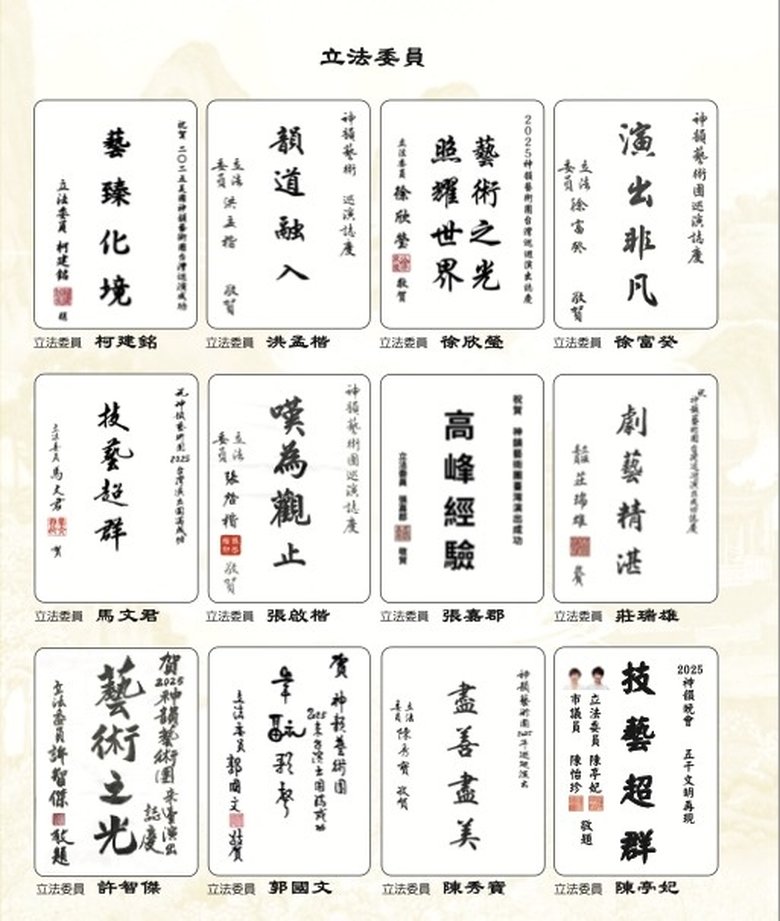 立法委員
祝賀 二〇二五美國神韻藝術團台灣巡演成功
藝臻化境
立法委員 柯建銘
立法委員 柯建銘
神韻藝術 巡演誌慶
韻道融入
立法委員 洪孟楷 敬賀
立法委員 洪孟楷
2025神韻藝術團台灣巡迴演出誌慶
藝術之光
照耀世界
立法委員 徐欣瑩 敬賀
立法委員 徐欣瑩
神韻藝術團巡演誌慶
演出非凡
立法委員 徐富癸 敬賀
立法委員 徐富癸
2025台灣演出圓滿成功
技藝超群
立法委員 馬文君 賀
立法委員 馬文君
神韻藝術團巡演誌慶
嘆為觀止
立法委員 張啓楷 敬賀
立法委員 張啟楷
祝賀 神韻藝術團臺灣演出成功
高峰經驗
立法委員 張嘉郡 敬賀
立法委員 張嘉郡
祝
神韻藝術團台灣巡迴演出成功誌慶
劇藝精湛
立法委員 莊瑞雄 敬賀
立法委員 莊瑞雄
賀2025神韻藝術團來臺演出誌慶
藝術之光
立法委員 許智傑 敬題
立法委員 許智傑
賀 神韻藝術團
2025來台演出圓滿成功
立法委員 郭國文 敬賀
立法委員 郭國文
神韻藝術團2025年巡迴演出
盡善盡美
立法委員 陳秀寶 敬賀
立法委員 陳秀寳
2025
神韻晚會 五千文明再現
技藝超群
立法委員 陳亭妃
市議員 陳怡珍
敬題
立法委員 陳亭妃